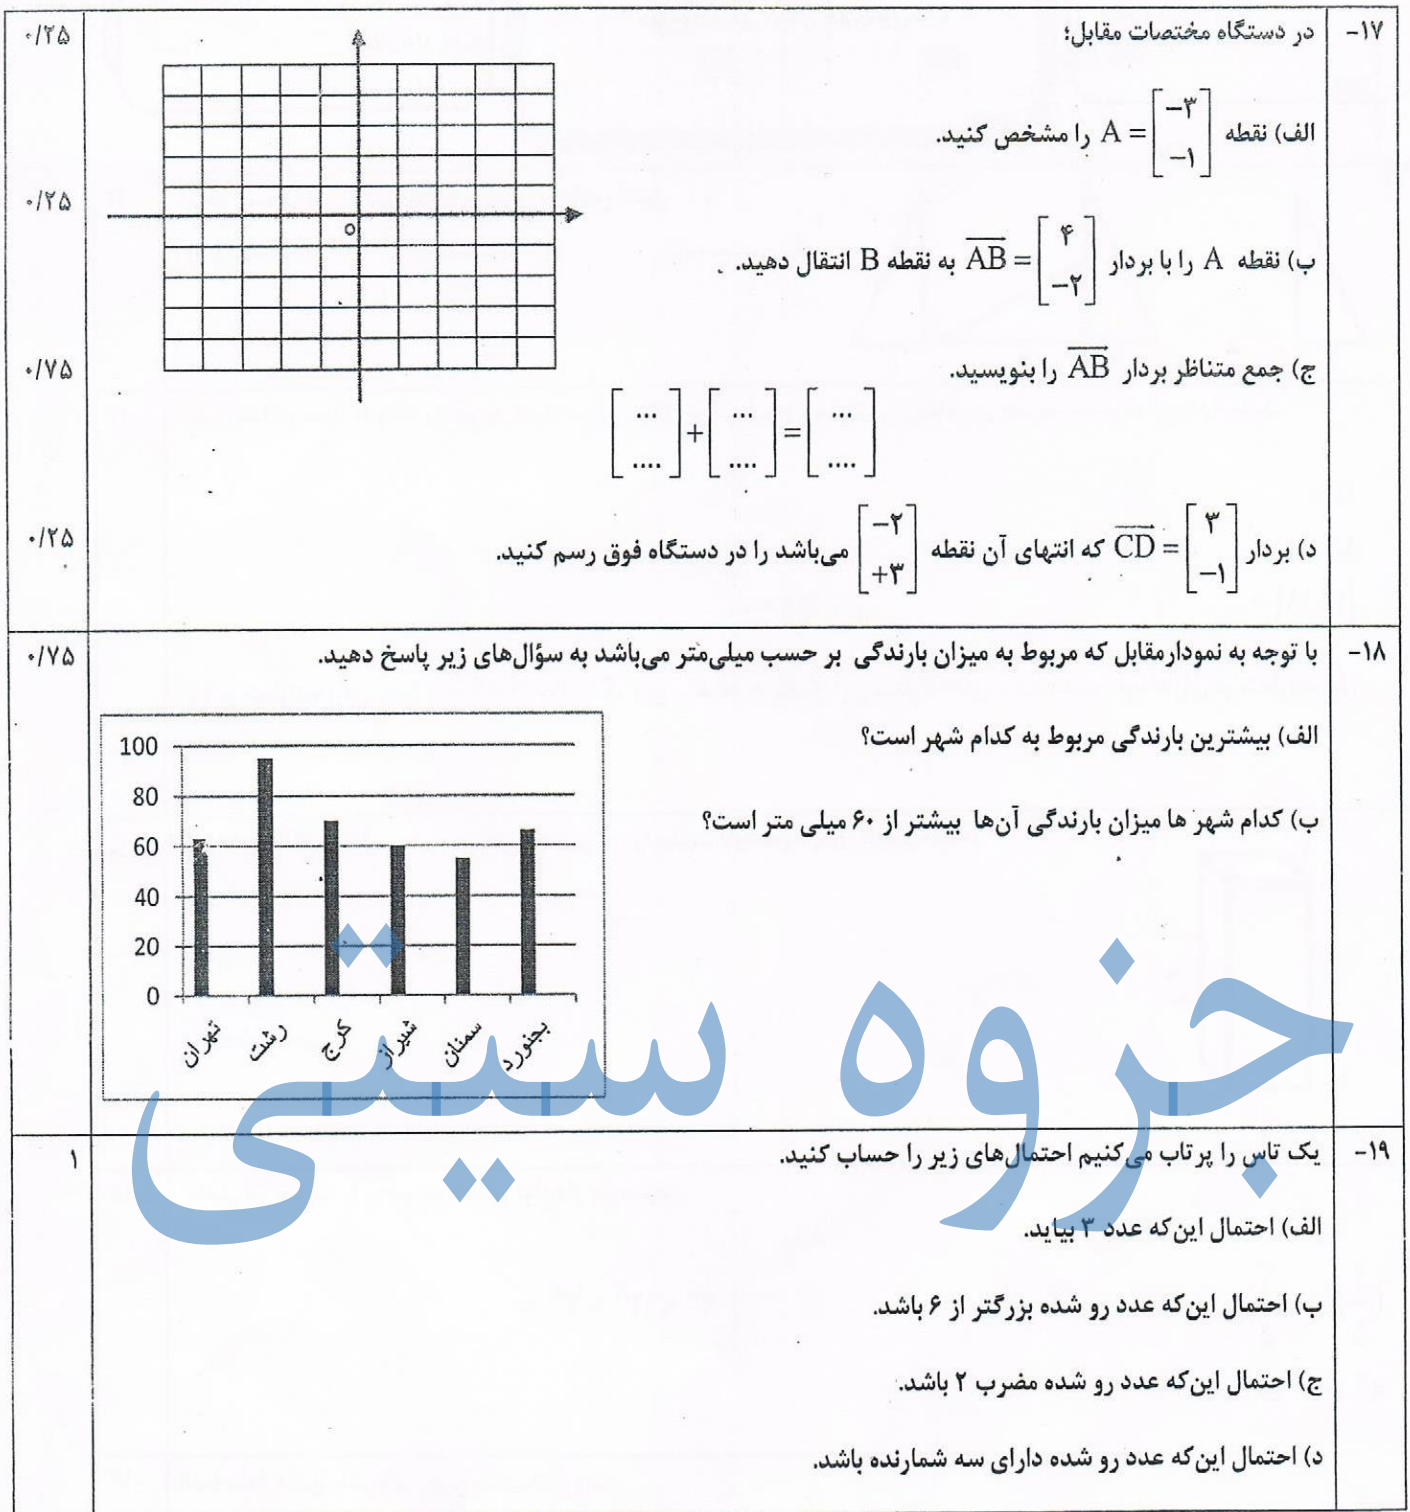 ۱۷- در دستگاه مختصات مقابل؛ ۰/۲۵
الف) نقطه A = [−۳ −۱] را مشخص کنید.
o
ب) نقطه A را با بردار AB = [۴ −۲] به نقطه B انتقال دهید. ۰/۲۵
ج) جمع متناظر بردار AB را بنویسید. ۰/۷۵
[... ....] + [... ....] = [... ....]
د) بردار CD = [۳ −۱] که انتهای آن نقطه [−۲ +۳] می‌باشد را در دستگاه فوق رسم کنید. ۰/۲۵
۱۸- با توجه به نمودارمقابل که مربوط به میزان بارندگی بر حسب میلی‌متر می‌باشد به سؤال‌های زیر پاسخ دهید. ۰/۷۵
الف) بیشترین بارندگی مربوط به کدام شهر است؟
ب) کدام شهر ها میزان بارندگی آن‌ها بیشتر از ۶۰ میلی متر است؟
100
80
60
40
20
0
تهران رشت کرج شیراز سمنان بجنورد
جزوه سیتی
۱۹- یک تاس را پرتاب می‌کنیم احتمال‌های زیر را حساب کنید. ۱
الف) احتمال این‌که عدد ۳ بیاید.
ب) احتمال این‌که عدد رو شده بزرگتر از ۶ باشد.
ج) احتمال این‌که عدد رو شده مضرب ۲ باشد.
د) احتمال این‌که عدد رو شده دارای سه شمارنده باشد.